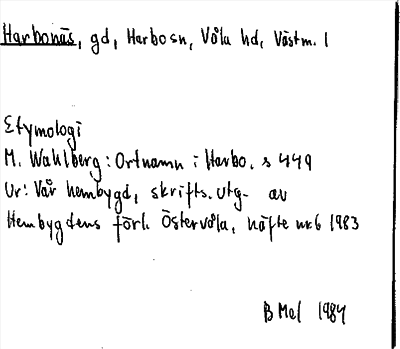 Harbonäs, gd, Harbo sn, Våla hd, Västm. l
Etymologi
M. Wahlberg: Ortnamn i Harbo. s 449
Ur: Vår hembygd, skrifts. utg. av
Hembygdens förl. Östervåla, häfte nr 6 1983
B Mel 1984